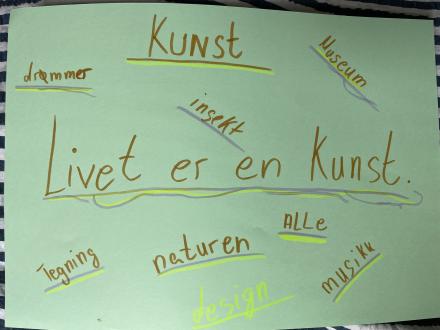 KUNST
Museum
drømmer
insekt
Livet er en Kunst.
ALLE
naturen
Tegning
musikk
design